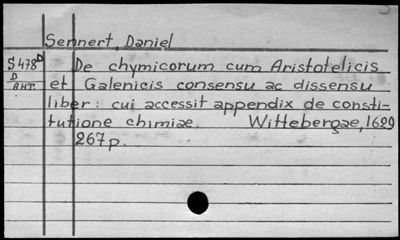 Sennert, Daniel
S478D De chymicorum cum Aristotelicis
D
AHT. et Galenicis consensu ac dissensu
liber: cui accessit appendix de consti-
tutione chimiae. Wittebergae, 1629
267p.